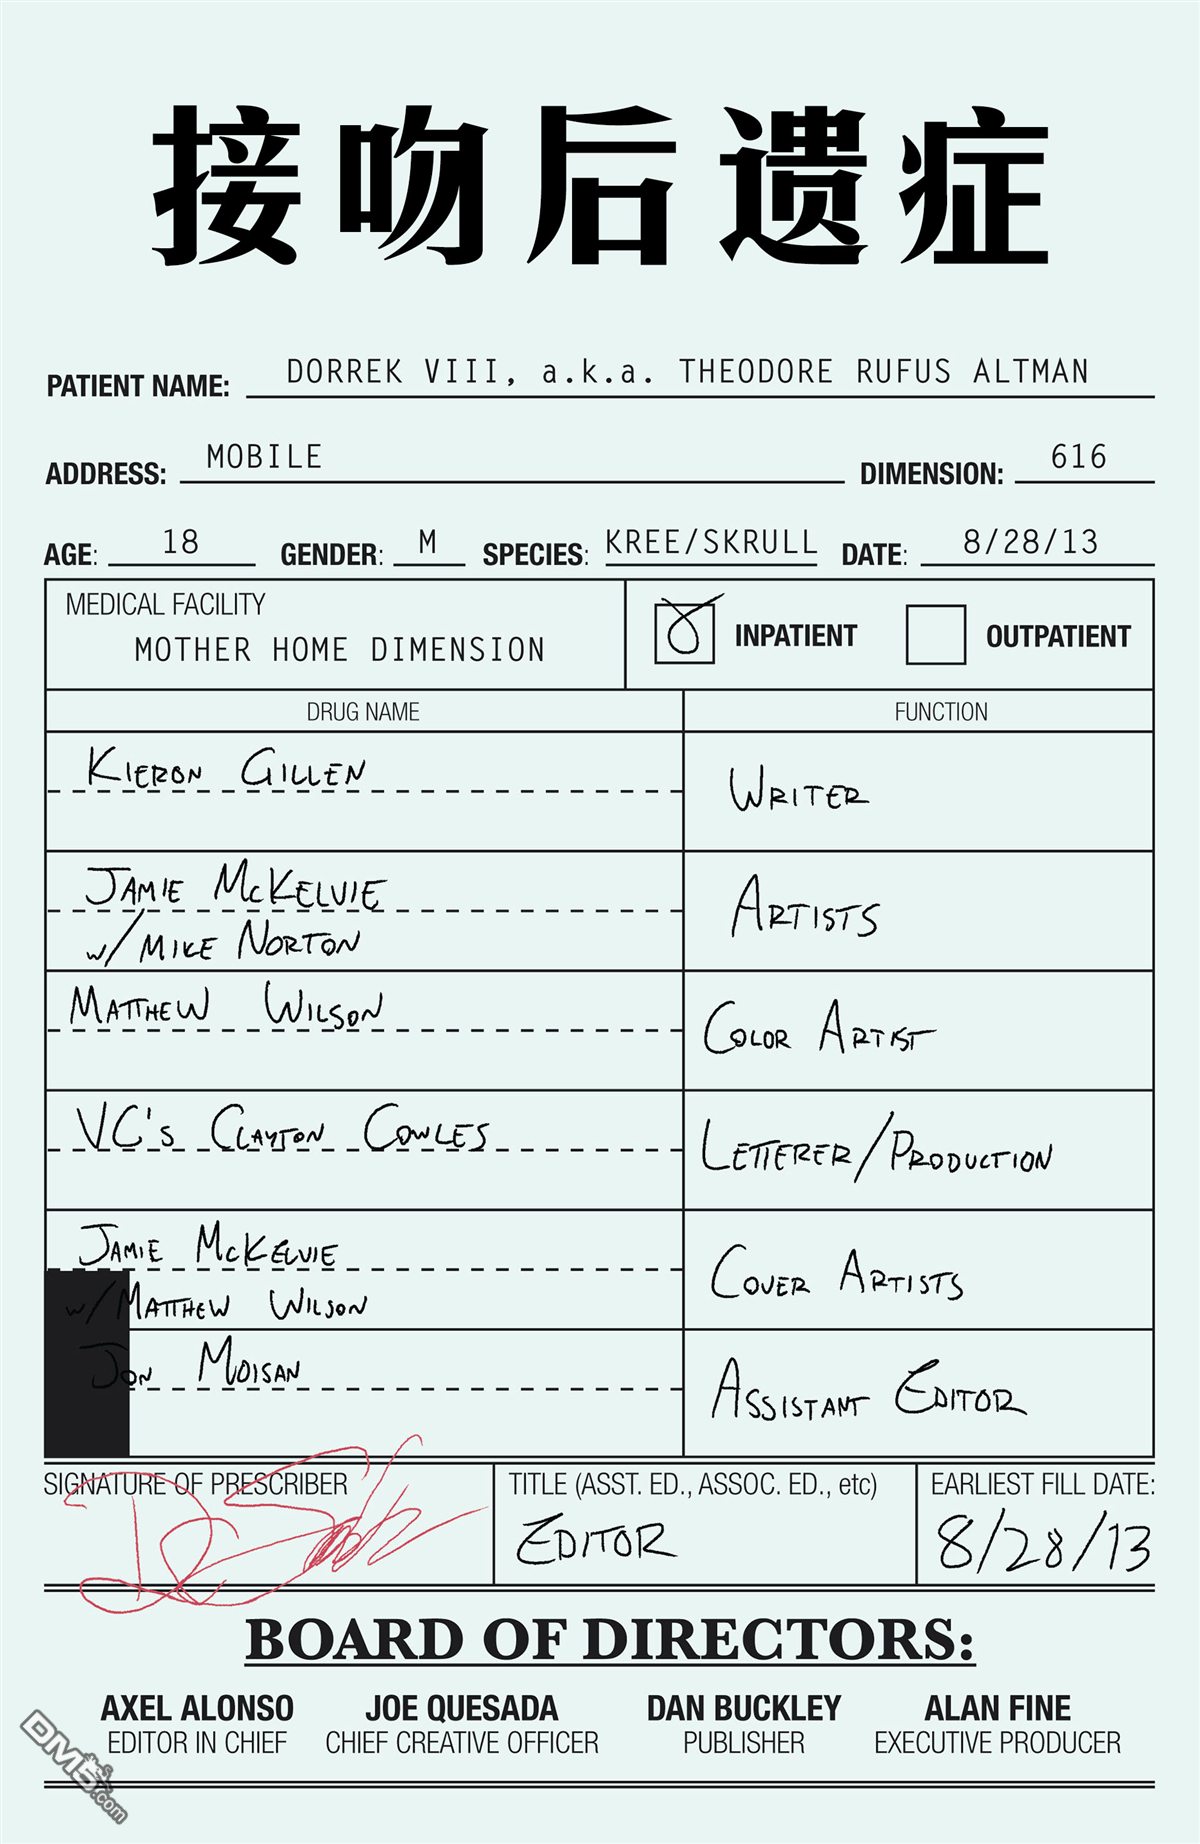 接吻后遗症
PATIENT NAME: DORREK VIII, a.k.a. THEODORE RUFUS ALTMAN
ADDRESS: MOBILE DIMENSION: 616
AGE: 18 GENDER: M SPECIES: KREE/SKRULL DATE: 8/28/13
MEDICAL FACILITY
MOTHER HOME DIMENSION
INPATIENT OUTPATIENT
DRUG NAME FUNCTION
KIERON GILLEN
WRITER
JAMIE MCKELVIE
W/ MIKE NORTON
ARTISTS
MATTHEW WILSON
COLOR ARTIST
VC'S CLAYTON COWLES
LETTERER/PRODUCTION
JAMIE MCKELVIE
W/ MATTHEW WILSON
COVER ARTISTS
JON MOISAN
ASSISTANT EDITOR
SIGNATURE OF PRESCRIBER
TITLE (ASST. ED., ASSOC. ED., etc)
EDITOR
EARLIEST FILL DATE:
8/28/13
BOARD OF DIRECTORS:
AXEL ALONSO JOE QUESADA DAN BUCKLEY ALAN FINE
EDITOR IN CHIEF CHIEF CREATIVE OFFICER PUBLISHER EXECUTIVE PRODUCER